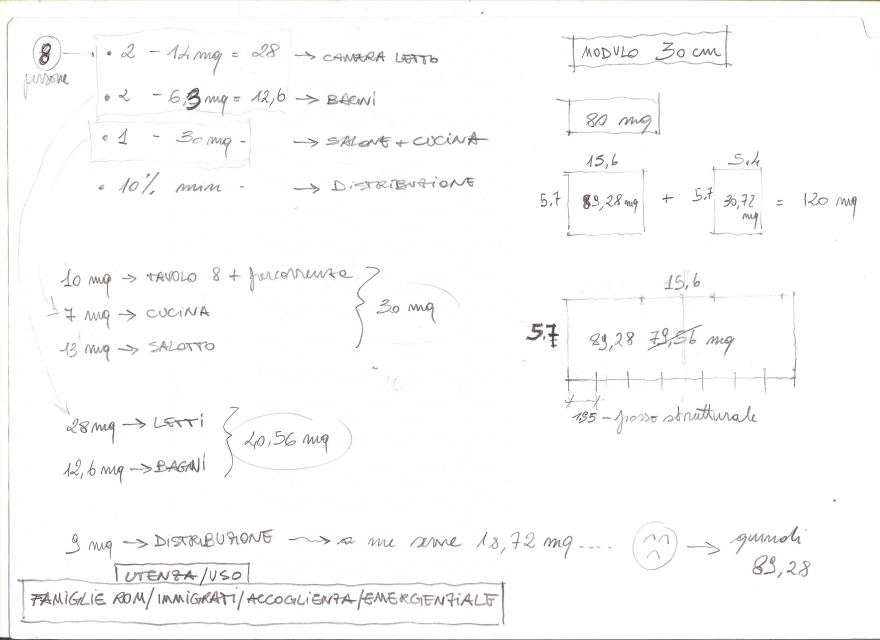 8
persone
• 2 - 14mq = 28 → CAMERA LETTO
• 2 - 6,3mq = 12,6 → BAGNI
• 1 - 30mq - → SALONE + CUCINA
• 10% min - → DISTRIBUZIONE
10 mq → TAVOLO 8 + percorrenza
7 mq → CUCINA
13 mq → SALOTTO
30 mq
28mq → LETTI
12,6 mq → BAGNI
40,56 mq
9 mq → DISTRIBUZIONE → a me serve 18,72 mq.... → quindi
89,28
UTENZA/USO
FAMIGLIE ROM/IMMIGRATI/ACCOGLIENZA/EMERGENZIALE
MODULO 30cm
80 mq
15,6 5.4
5.7 89,28mq + 5.7 30,72 mq = 120 mq
15,6
5.7 89,28 79,56 mq
195 - passo strutturale